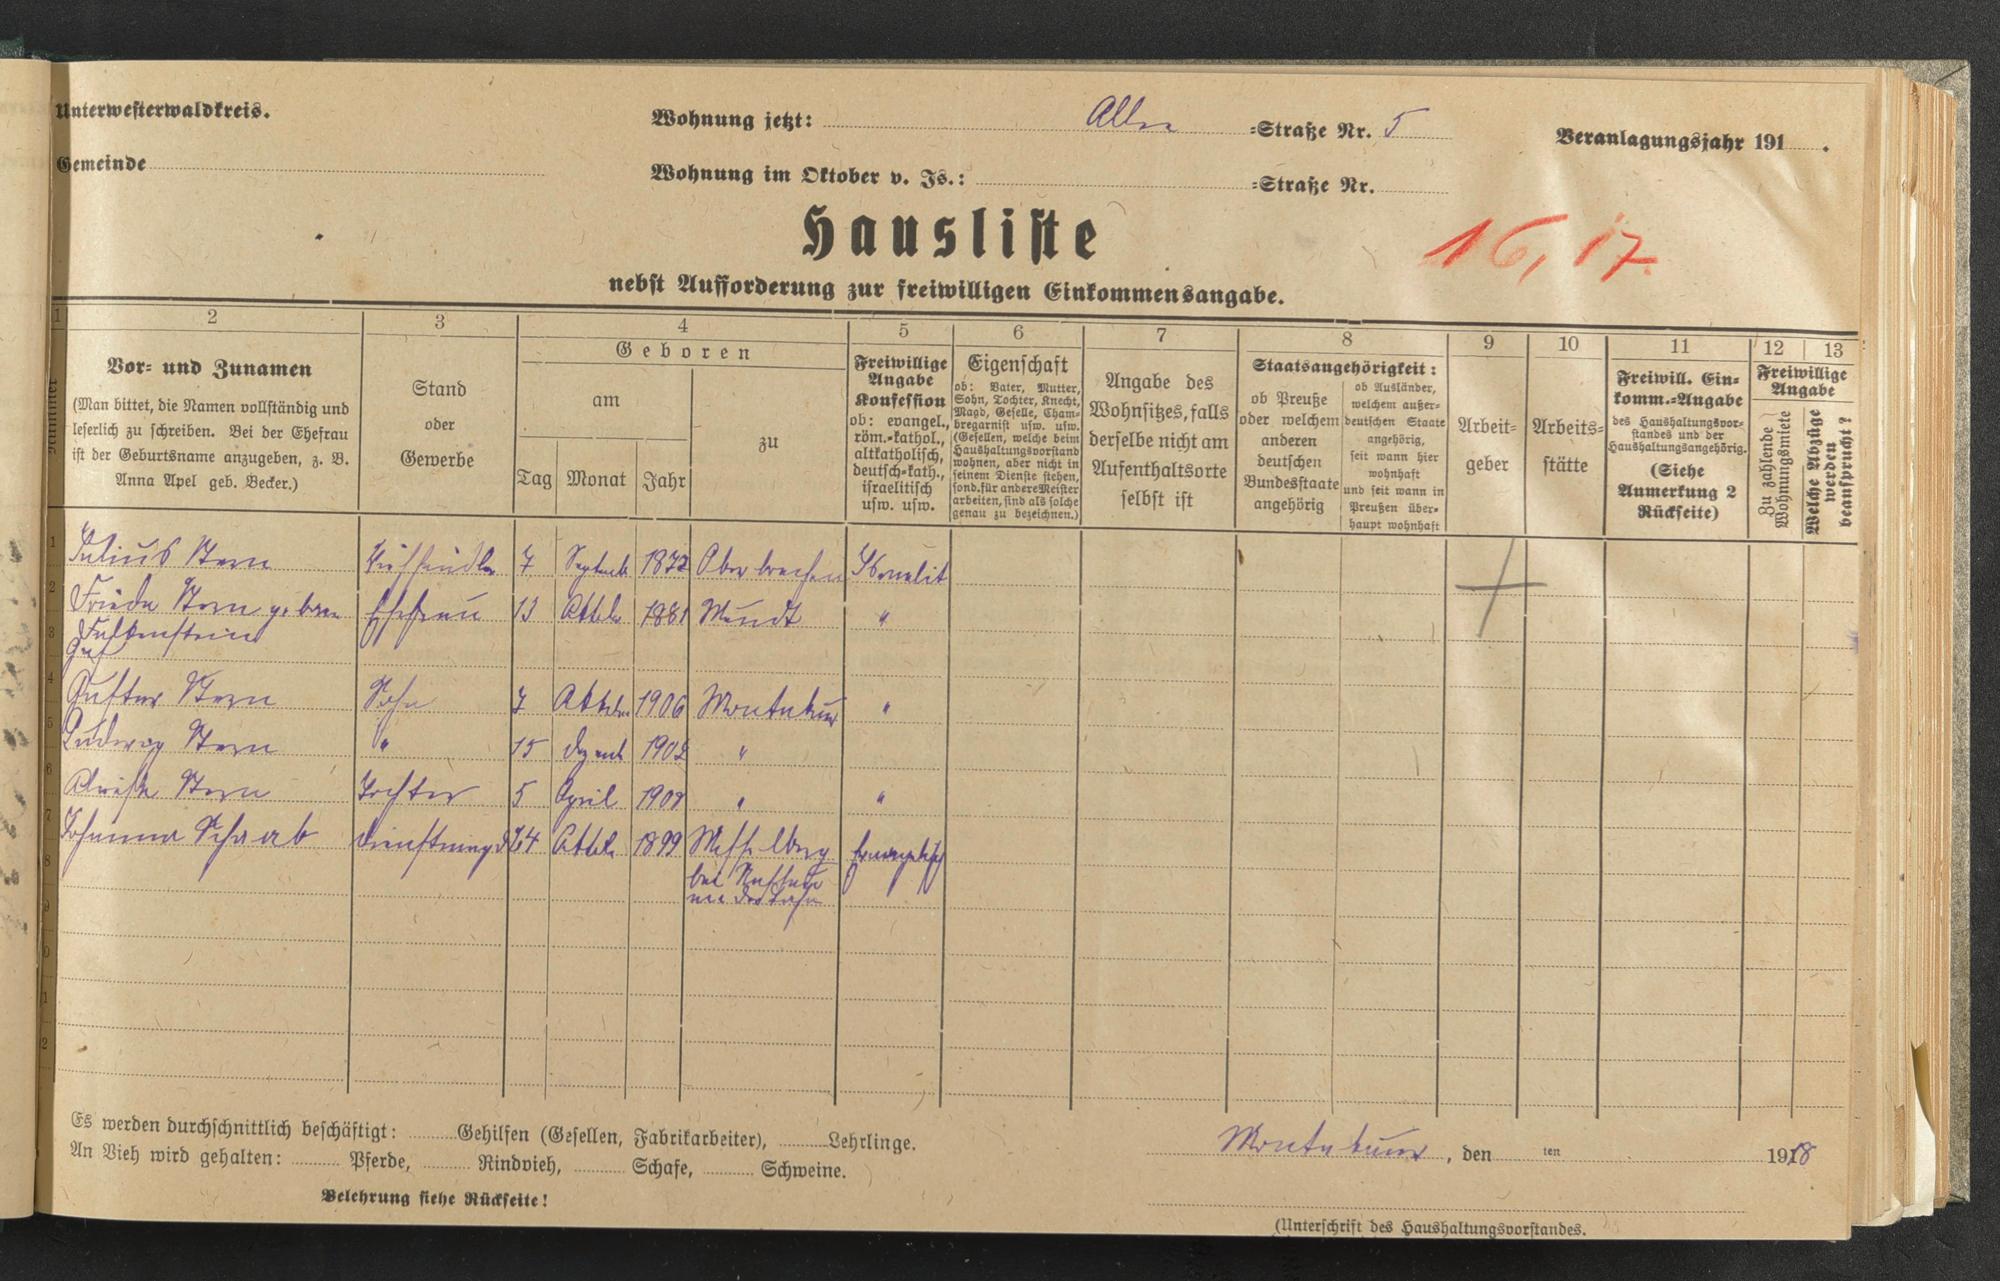 Unterwesterwaldkreis.
Wohnung jetzt: Allee =Straße Nr. 5
Veranlagungsjahr 191 .
Gemeinde
Wohnung im Oktober v. Js.: =Straße Nr.
Hausliste
16, 17
nebst Aufforderung zur freiwilligen Einkommensangabe.
1 2 3 4 5 6 7 8 9 10 11 12 13
Nummer
Vor- und Zunamen
(Man bittet, die Namen vollständig und
leserlich zu schreiben. Bei der Ehefrau
ist der Geburtsname anzugeben, z. B.
Anna Apel geb. Becker.)
Stand
oder
Gewerbe
Geboren
am
Tag Monat Jahr
zu
Freiwillige
Angabe
Konfession
ob: evangel.,
röm.-kathol.,
altkatholisch,
deutsch-kath.,
israelitisch
usw. usw.
Eigenschaft
ob: Vater, Mutter,
Sohn, Tochter, Knecht,
Magd, Geselle, Cham-
bregarnist usw. usw.
(Gesellen, welche beim
Haushaltungsvorstand
wohnen, aber nicht in
seinem Dienste stehen,
sond. für andere Meister
arbeiten, sind als solche
genau zu bezeichnen.)
Angabe des
Wohnsitzes, falls
derselbe nicht am
Aufenthaltsorte
selbst ist
Staatsangehörigkeit:
ob Preuße
oder welchem
anderen
deutschen
Bundesstaate
angehörig
ob Ausländer,
welchem außer-
deutschen Staate
angehörig,
seit wann hier
wohnhaft
und seit wann in
Preußen über-
haupt wohnhaft
Arbeit-
geber
Arbeits-
stätte
Freiwill. Ein-
komm.-Angabe
des Haushaltungsvor-
standes und der
Haushaltungsangehörig.
(Siehe
Anmerkung 2
Rückseite)
Freiwillige
Angabe
Zu zahlende
Wohnungsmiete
Welche Abzüge
werden
beansprucht?
1 Julius Stern Viehhändler 7 Septemb 1872 Oberbrechen Israelit
2 Frieda Stern geboren Ehefrau 13 1881 "
3 Falkenstein
4 Gustav Stern Sohn 7 1906 Montabaur "
5 Ludwig Stern " 15 Dezemb 190 "
6 Stern Tochter 5 April 190 " "
7 Johanna Schaab Dienstmagd 24 1899 Evangelisch
8 bei
9
0
1
2
Es werden durchschnittlich beschäftigt: Gehilfen (Gesellen, Fabrikarbeiter), Lehrlinge.
An Vieh wird gehalten: Pferde, Rindvieh, Schafe, Schweine.
Montabaur, den ten 1918
Belehrung siehe Rückseite!
(Unterschrift des Haushaltungsvorstandes.